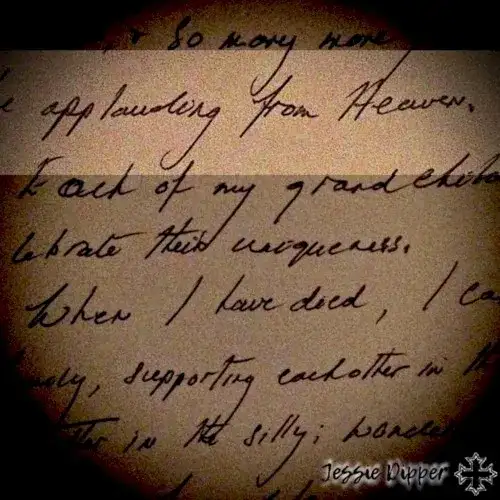 & so many more
applauding from Heaven.
Each of my grandchild
lebrate their uniqueness.
When I have died, I ca
supporting eachother in th
in the silly; wonde
Jessie Dipper